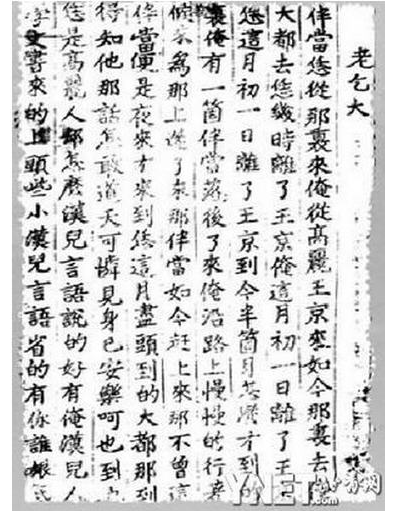 老乞大
伴當恁從那裏來俺從高麗王京來如今那裏去
大都去恁幾時離了王京俺這月初一日離了王
恁這月初一日離了王京到今半箇月怎才到的
裏俺有一箇伴當落後了來俺沿路上慢慢的行着
候來爲那上遲了來那伴當如今赶上來那不曾這
伴當便是夜來才來到恁這月盡頭到的大都那到
得知他那話怎敢道天可憐見身已安樂呵也到
恁是高麗人却怎麽漢兒言語說的好有俺漢兒人
學文書來的上頭些小漢兒言語省的有你誰根
YNET